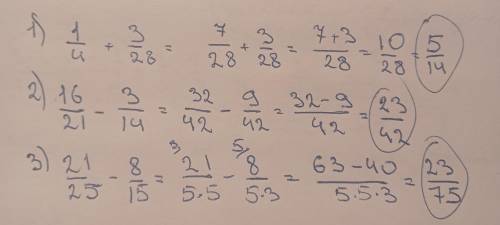 1) 1/4 + 3/28 = 7/28 + 3/28 = 7+3/28 = 10/28 = 5/14
2) 16/21 - 3/14 = 32/42 - 9/42 = 32-9/42 = 23/42
3) 21/25 - 8/15 = 3/ 21/5·5 - 5/ 8/5·3 = 63-40/5·5·3 = 23/75